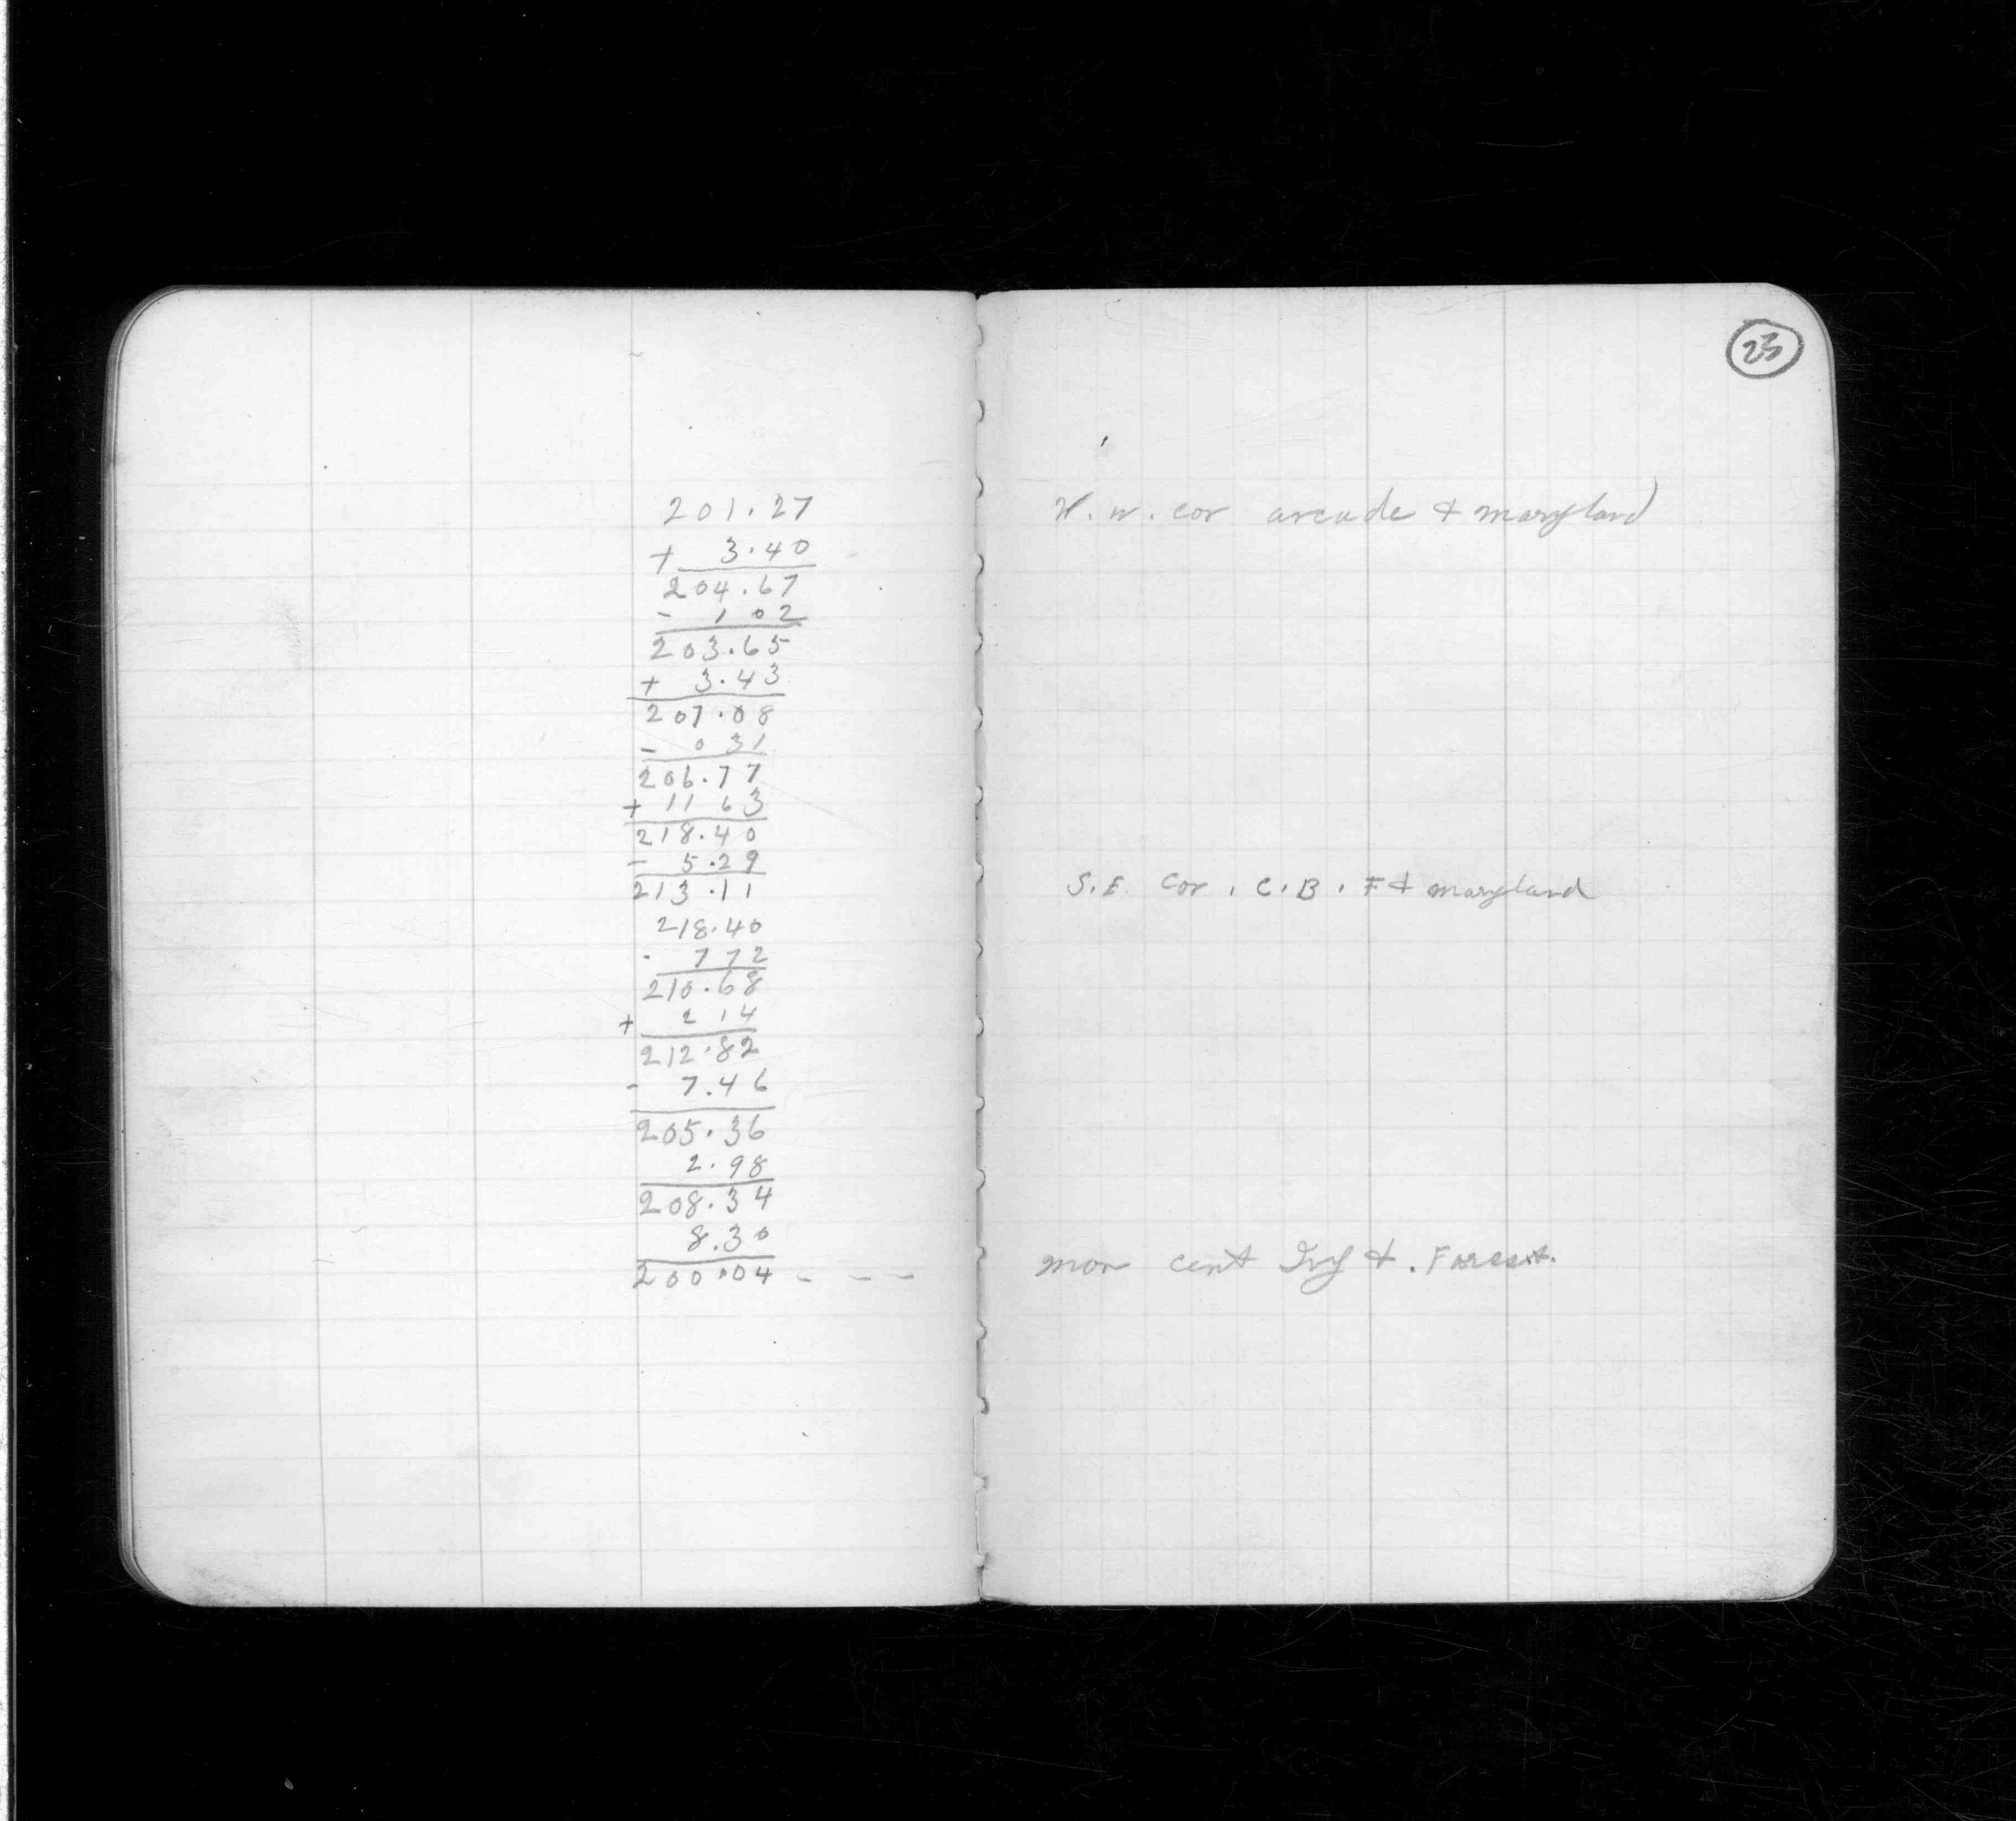 23
201.27
+ 3.40
204.67
- 1 02
203.65
+ 3.43
207.08
- 0 31
206.77
+ 11 63
218.40
- 5.29
213.11
218.40
- 7 72
210.68
+ 2 14
212.82
- 7.46
205.36
2.98
208.34
8.30
200.04 - - -
N. W. cor arcade & maryland
S.E. Cor. C.B. F & maryland
mon cent Ivy &. Forest.